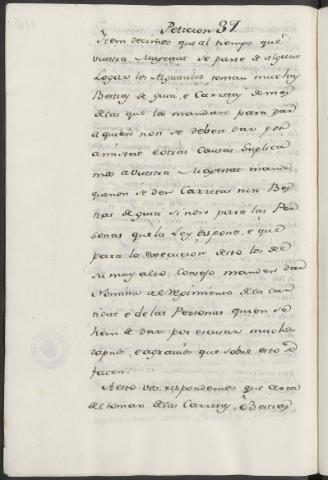 Peticion 37.
Ytem decimos que al tiempo que
vuestra Magestat se parte de algun
Logar los Alguaciles toman muchas
Bestias de guia, e Carretas demas
delas que les mandan para dar
a quien non se deben dar por
amistat e otras causas. Suplica
mos a vuestra Magestat mande
que non se den Carretas nin Bes
tias de guia si non para las Per
sonas que la Ley dispone, e que
para la execucion desto los del
su muy alto Consejo manden dar
Nomina al Regimiento dela can
tidat e de las Personas quien se
han de dar por escusar muchos
dapnos, e agravios que sobre esto se
facen.
A esto vos respondemos que cerca
del tomar de las Carretas, e Bestias